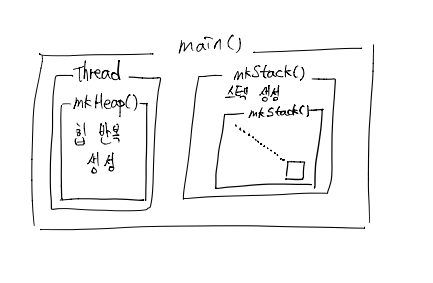 main()
Thread
mkHeap()
힙 반복
생성
mkStack()
스택 생성
mkStack()